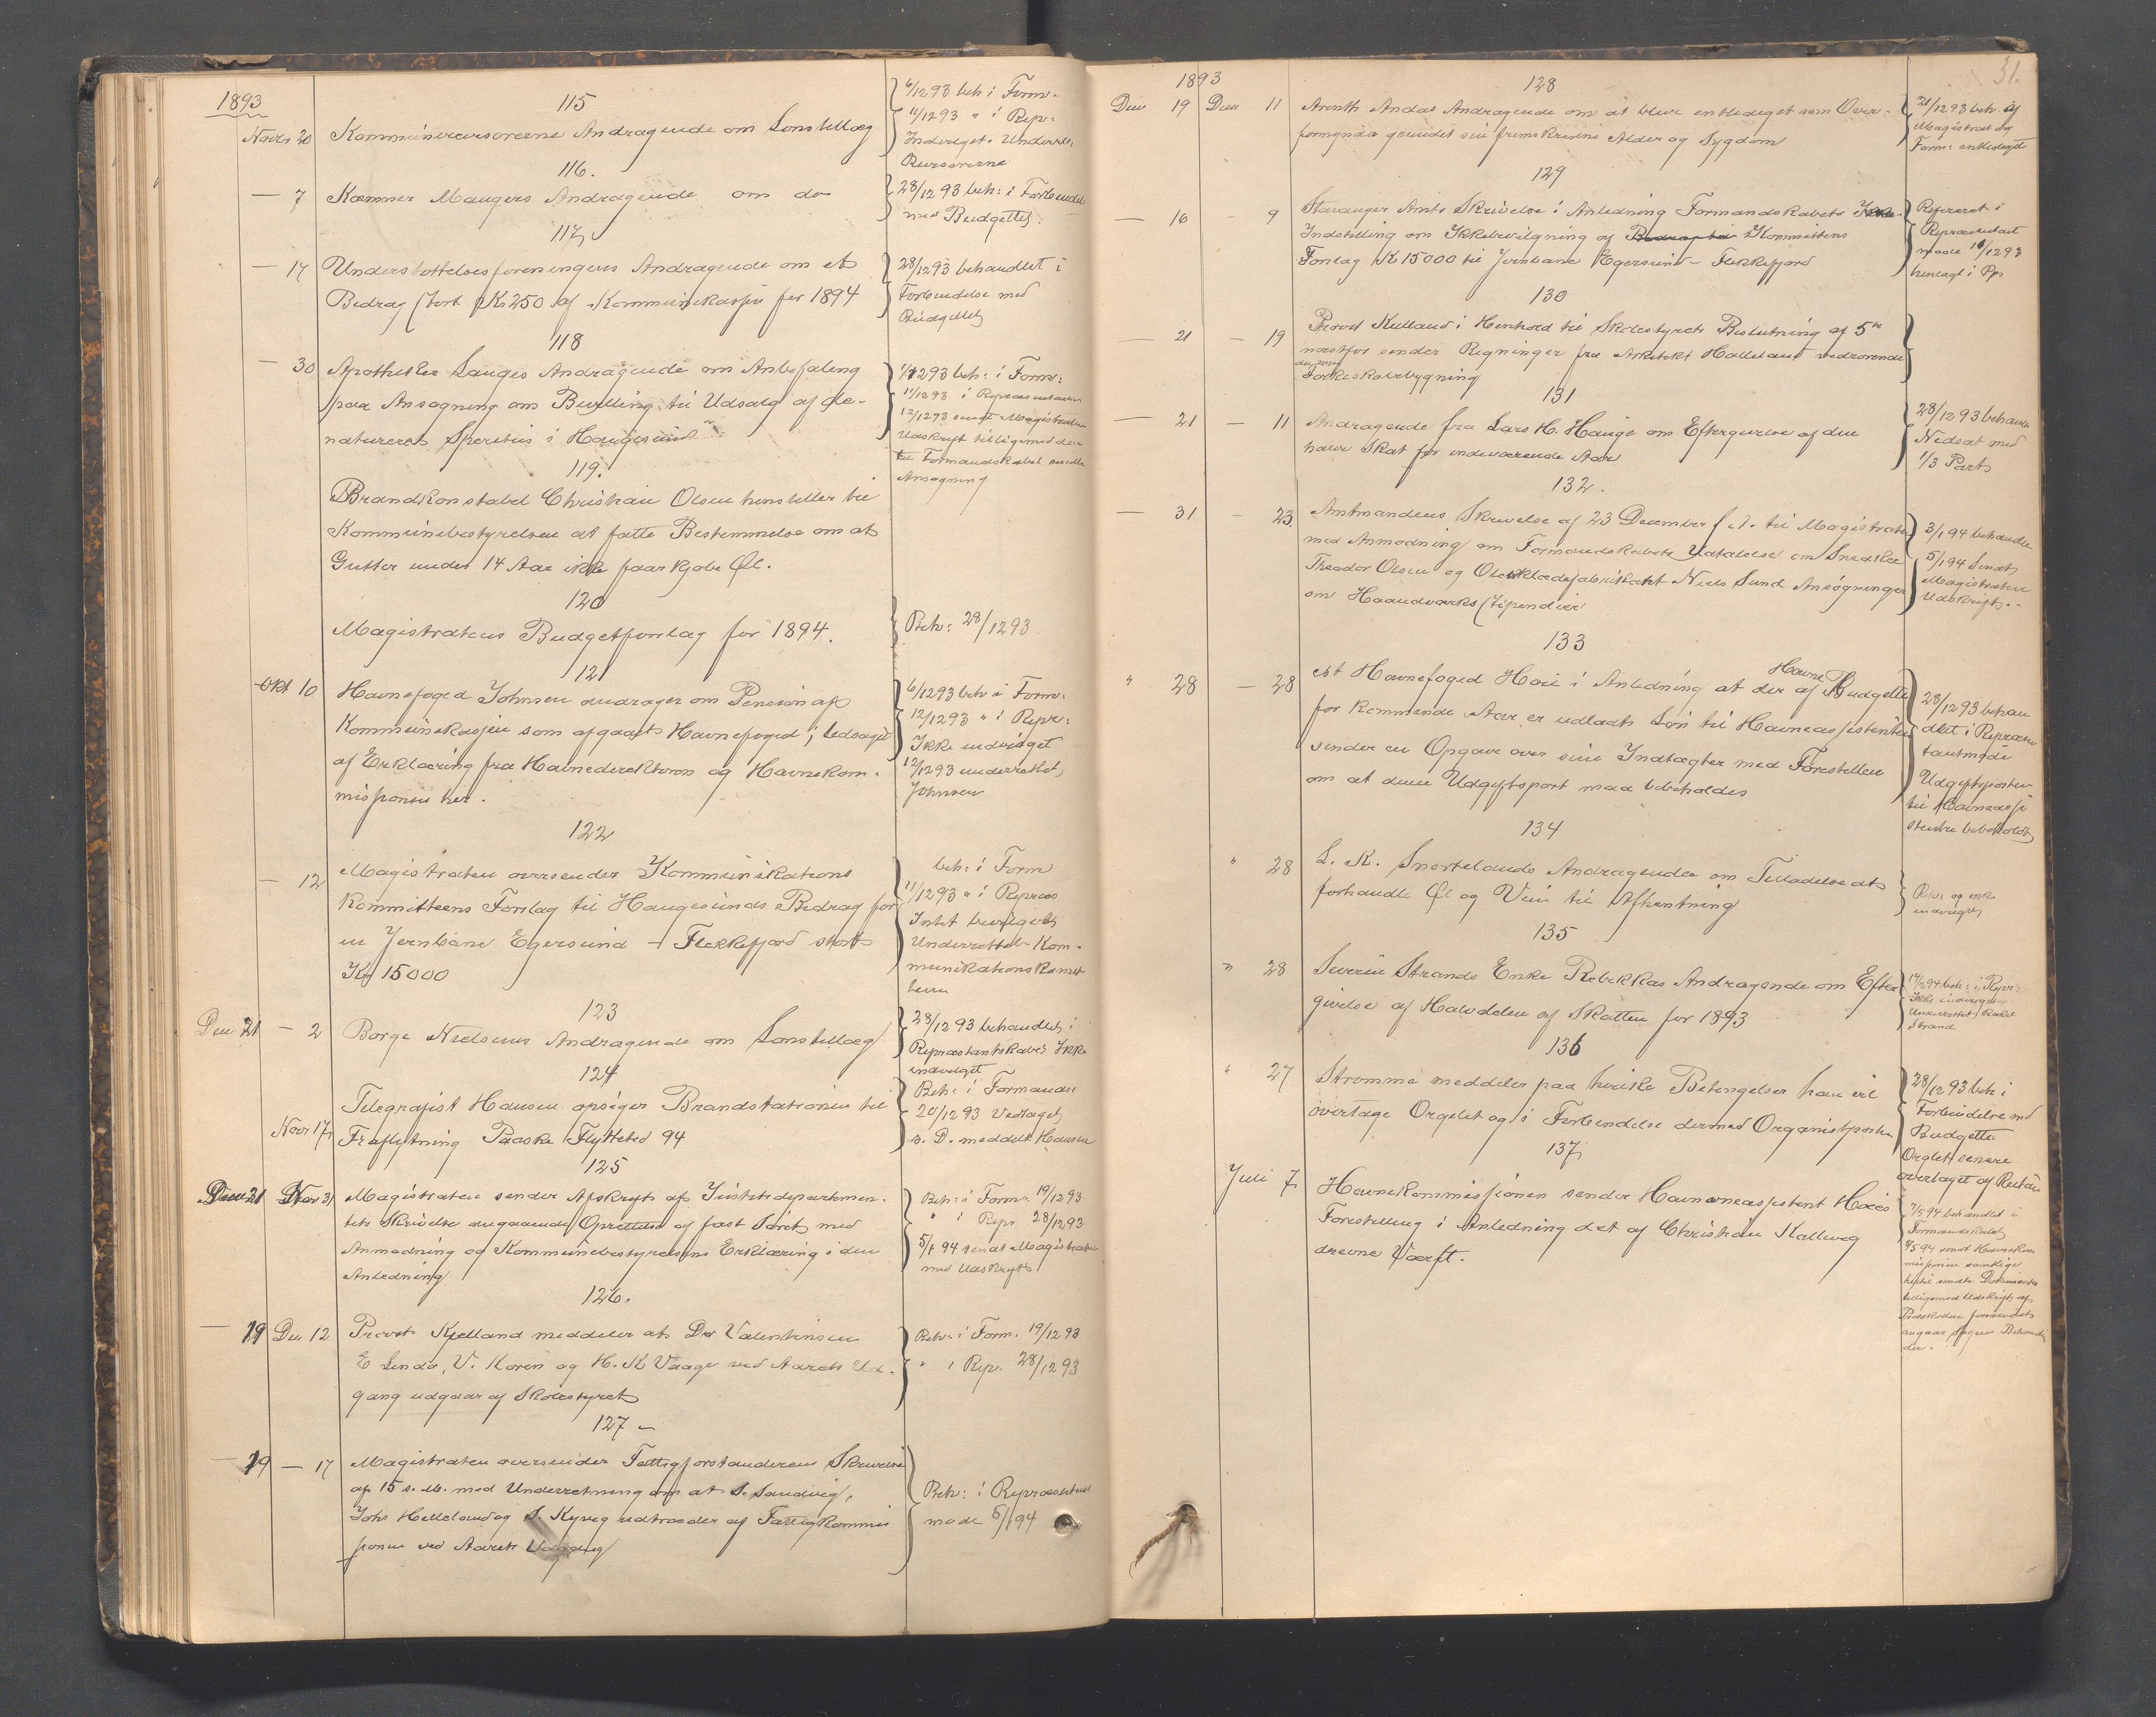 1893
115
Novbr 20 Kommunerevisorerne Andragende om Lønstillæg
6/12 93 beh: i Form:
11/12 93 " i Repr.
Indvilget. Underr.
Revisorerne
116.
— 7 Kæmner Maugers Andragende om do
28/12 93 beh: i Forbindel
med Budgettet.
117
— 17 Understøttelsesforeningens Andragende om et
Bedrag stort Kr 250 af Kommunekassen for 1894
28/12 93 behandlet i
Forbindelse med
Budgettet
118
— 30 Apotheker Langes Andragende om Anbefaling
paa Ansøgning om Bevilling til Udsalg af de-
natureret Spiritus i Haugesund
beh: i Form:
11/12 93 i Repræsentanten
12/12 93 sendt Magistraten
Udskrift tilligemed den
til Formandskabet sendte
Ansøgning
119.
Brandkonstabel Christian Olsen henstiller til
Kommunebestyrelsen at fatte Bestemmelse om at
Gutter under 14 Aar ikke faar kjøbe Øl.
120
Magistratens Budgetforslag for 1894.
Beh: 28/12 93
121
Okt 10 Havnefoged Johnsen andrager om Pension af
Kommunekassen som afgaaet Havnefoged, ledsaget
af Erklæring fra Havnedirektøren og Havnekom-
missionen her.
6/12 93 beh i Form:
12/12 93 " i Repr:
Ikke indvilget
12/12 93 underrettet
Johnsen
122
— 12 Magistraten oversender Kommunikations
Kommitteens Forslag til Haugesunds Bidrag for
en Jernbane Egersund - Flekkefjord stort
Kr 15000
beh: i Form
11/12 93 " i Repræs
Intet bevilget
Underrettet Kom-
munikationskomit
teen
123
Dec 21 — 2 Børge Nielsens Andragende om Lønstillæg
28/12 93 behandlet i
Repræstantskabet Ikke
indvilget
124
Novr 17 Telegrafist Hansen opsiger Brandstationen til
Fraflytning Paaske Flyttetid 94
Beh: i Formandsk
20/12 93 Vedtaget
s. D. meddelt Hansen
125
Dec 21 Nov 31 Magistraten sender Afskrift af Justitsdepartemen-
tets Skrivelse angaaende Oprettelse af fast Søret med
Anmodning og Kommunebestyrelsens Erklæring i den
Anledning
Beh: i Form. 19/12 93
" i Repr 28/12 93
5/1 94 sendt Magistraten
med Udskrift
126.
— 19 Dec 12 Provst Kjelland meddeler at Dr Valentinsen
E Lindø, V. Koren og H. K Vaage ved Aarets Ud-
gang udgaar af Skolestyret
Beh: i Form. 19/12 93
" i Rep. 28/12 93
127
— 19 — 17 Magistraten oversender Fattigforstanderens Skrivelse
af 15 s. M. med Underretning om at S. Sandvig,
Johs Helleland og S. Kyvig udtræder af Fattigkommis
sionen ved Aarets Udgang
Beh: i Repræsentant
møde 5/1 94
31.
1893
128
Dec 19 Dec 11 Aronth Andas Andragende om at blive entlediget som Over-
formynder grundet sin fremskredne Alder og Sygdom
21/12 93 beh. af
Magistrat og
Form: entlediget
129
— 16 — 9 Stavanger Amts Skrivelse i Anledning Formandskabets
Indstilling om Ikkebevilgning af Kommitteens
Forslag Kr 15000 til Jernbane Egersund - Flekkefjord
Refereret i
Repræsentant
møde 11/12 93
henlagt i
130
— 21 — 19 Provst Kielland i Henhold til Skolestyrets Beslutning af 5te
næstfor sender Regninger fra Arkitekt Halleland vedrørende
den nye
Folkeskolebygning
131
— 21 — 11 Andragende fra Lars H. Hauge om Eftergivelse af den
halve Skat for indeværende Aar
28/12 93 behandl
Nedsat med
1/3 Part
132.
— 31 — 23 Amtmandens Skrivelse af 23 December f. A. til Magistraten
med Anmodning om Formandskabets Udtalelse om Snedker
Theodor Olsen og Olieklædefabrikant Niels Sund Ansøgninger
om Haandværks Stipendier
3/1 94 behandlet
5/1 94 Sendt
Magistraten
Udskrift.
133
" 28 — 28 At Havnefoged Høie i Anledning at der af Havne Budgettet
for kommende Aar er udladt Løn til Havneassistenten
sender en Opgave over sine Indtægter med Forestillen
om at denne Udgiftspost maa bibeholdes
28/12 93 behan
dlet i Repræsen
tantmøde
Udgiftsposten
til Havneassi
stenten bibeholdt
134
" 28 L. K. Snørtelands Andragende om Tilladelse at
forhandle Øl og Vin til Afhentning
Beh: og ikke
indvilget
135
" 28 Severin Strands Enke Rebekkas Andragende om Efter
givelse af Halvdelen af Skatten for 1893
beh: i Repr:
Ikke indvilget
Underrettet
Strand
136
" 27 Strømme meddeler paa hvilke Betingelser han vil
overtage Orgelet og i Forbindelse dermed Organistposten
28/12 93 beh i
Forbindelse med
Budgettet
Orglet senere
overtaget af
137
Juli 7 Havnekommissionen sender Havneassistent Høies
Forestilling i Anledning det af Christian Kallevig
drevne Værft.
7/5 94 behandlet i
Formandskabet
8/5 94 sendt Havnekom
missionen samtlige
hertil sendte Dokumenter
tilligemed Udskrift af
Protokollen forsaavidt
angaar Sagens Behand